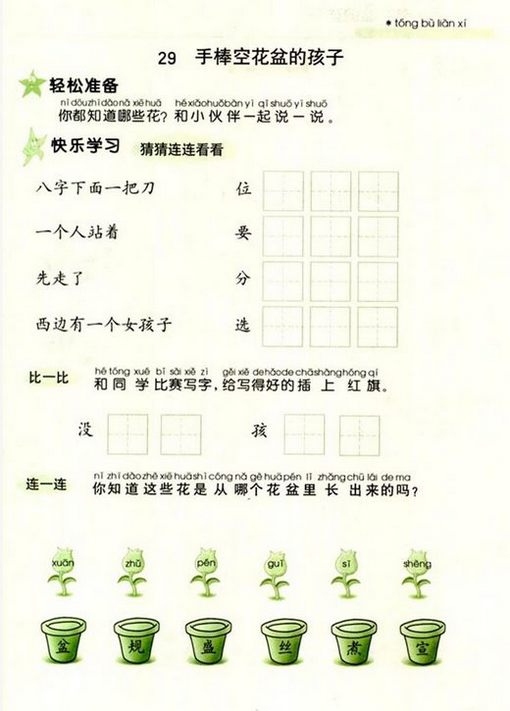 * tóng bù liàn xí
29 手棒空花盆的孩子
轻松准备
nǐ dōu zhī dào nǎ xiē huā hé xiǎo huǒ bàn yì qǐ shuō yì shuō
你都知道哪些花?和小伙伴一起说一说。
快乐学习 猜猜连连看看
八字下面一把刀 位
一个人站着 要
先走了 分
西边有一个女孩子 选
hé tóng xué bǐ sài xiě zì gěi xiě de hǎo de chā shàng hóng qí
比一比 和同学比赛写字,给写得好的插上红旗。
没 孩
nǐ zhī dào zhè xiē huā shì cóng nǎ gè huā pén lǐ zhǎng chū lái de ma
连一连 你知道这些花是从哪个花盆里长出来的吗?
xuān zhǔ pén guī sī shèng
盆 规 盛 丝 煮 宣